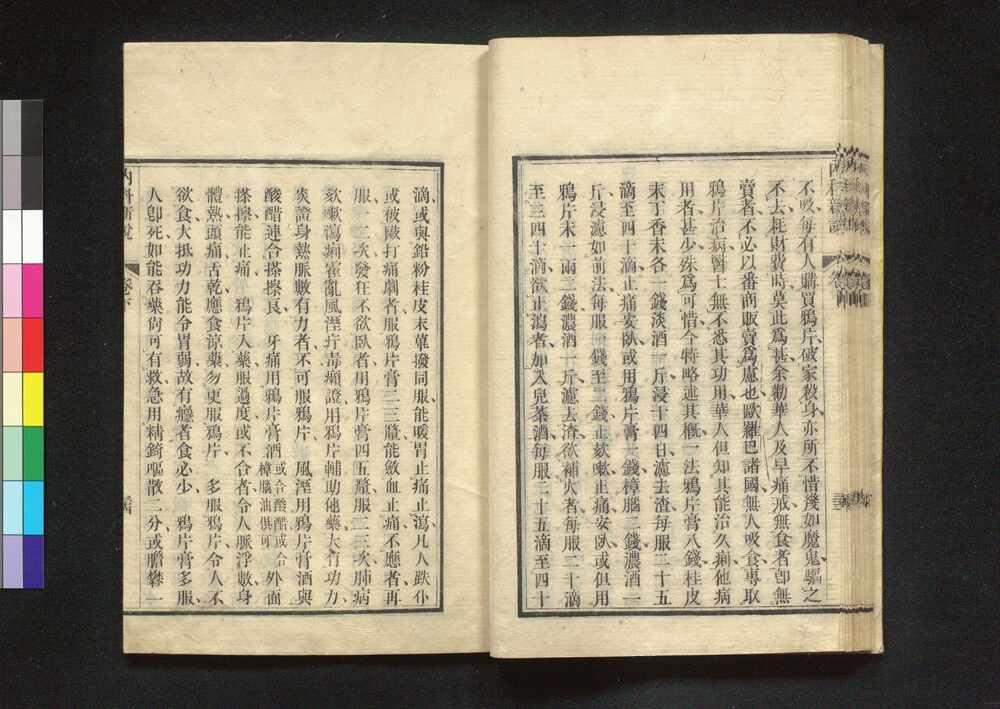 不吸、每有人購買鴉片、破家殺身、亦所不惜、幾如魔鬼驅之
不去、耗財費時、莫此爲甚、余勸華人及早痛戒、無食者卽無
賣者、不必以番商販賣爲慮也、歐羅巴諸國、無人吸食、專取
鴉片治病、醫士無不悉其功用、華人但知其能治久痢、他病
用者甚少、殊爲可惜、今特略述其槪、一法鴉片膏八錢、桂皮
末丁香末各一錢、淡酒一斤、浸十四日、濾去渣、每服二十五
滴至四十滴、止痛安臥、或用鴉片膏一錢、樟腦二錢、濃酒一
斤、浸濾如前法、每服一錢至三錢、止欬嗽、止痛安臥、或但用
鴉片末一兩二錢、濃酒一斤、濾去渣、欲補火者、每服二十滴
至三四十滴、欲止瀉者、加入兒茶酒、每服二十五滴至四十
滴、或與鉛粉桂皮末蓽撥同服、能暖胃止痛止瀉、凡人跌仆
或被毆打、痛劇者、服鴉片膏二三釐、能斂血止痛、不應者再
服一二次、發狂不欲臥者、用鴉片膏四五釐、服二三次、肺病
欬嗽瀉痢霍亂風溼疔毒癲證、用鴉片輔助他藥、大有功力、
炎證身熱脈數有力者、不可服鴉片、　風溼用鴉片膏酒與
酸醋連合搽擦良、　牙痛用鴉片膏酒或合酸醋或合樟腦油俱可、外面
搽擦能止痛、　鴉片入藥服過度、或不合者、令人脈浮數、身
體熱、頭痛、舌乾、應食涼藥、勿更服鴉片、　多服鴉片、令人不
欲食、大抵功力能令胃弱、故有癮者食必少、　鴉片膏多服、
人卽死、如能吞藥、尙可有救、急用精錡嘔散二分、或膽礬一
內科新說
卷下